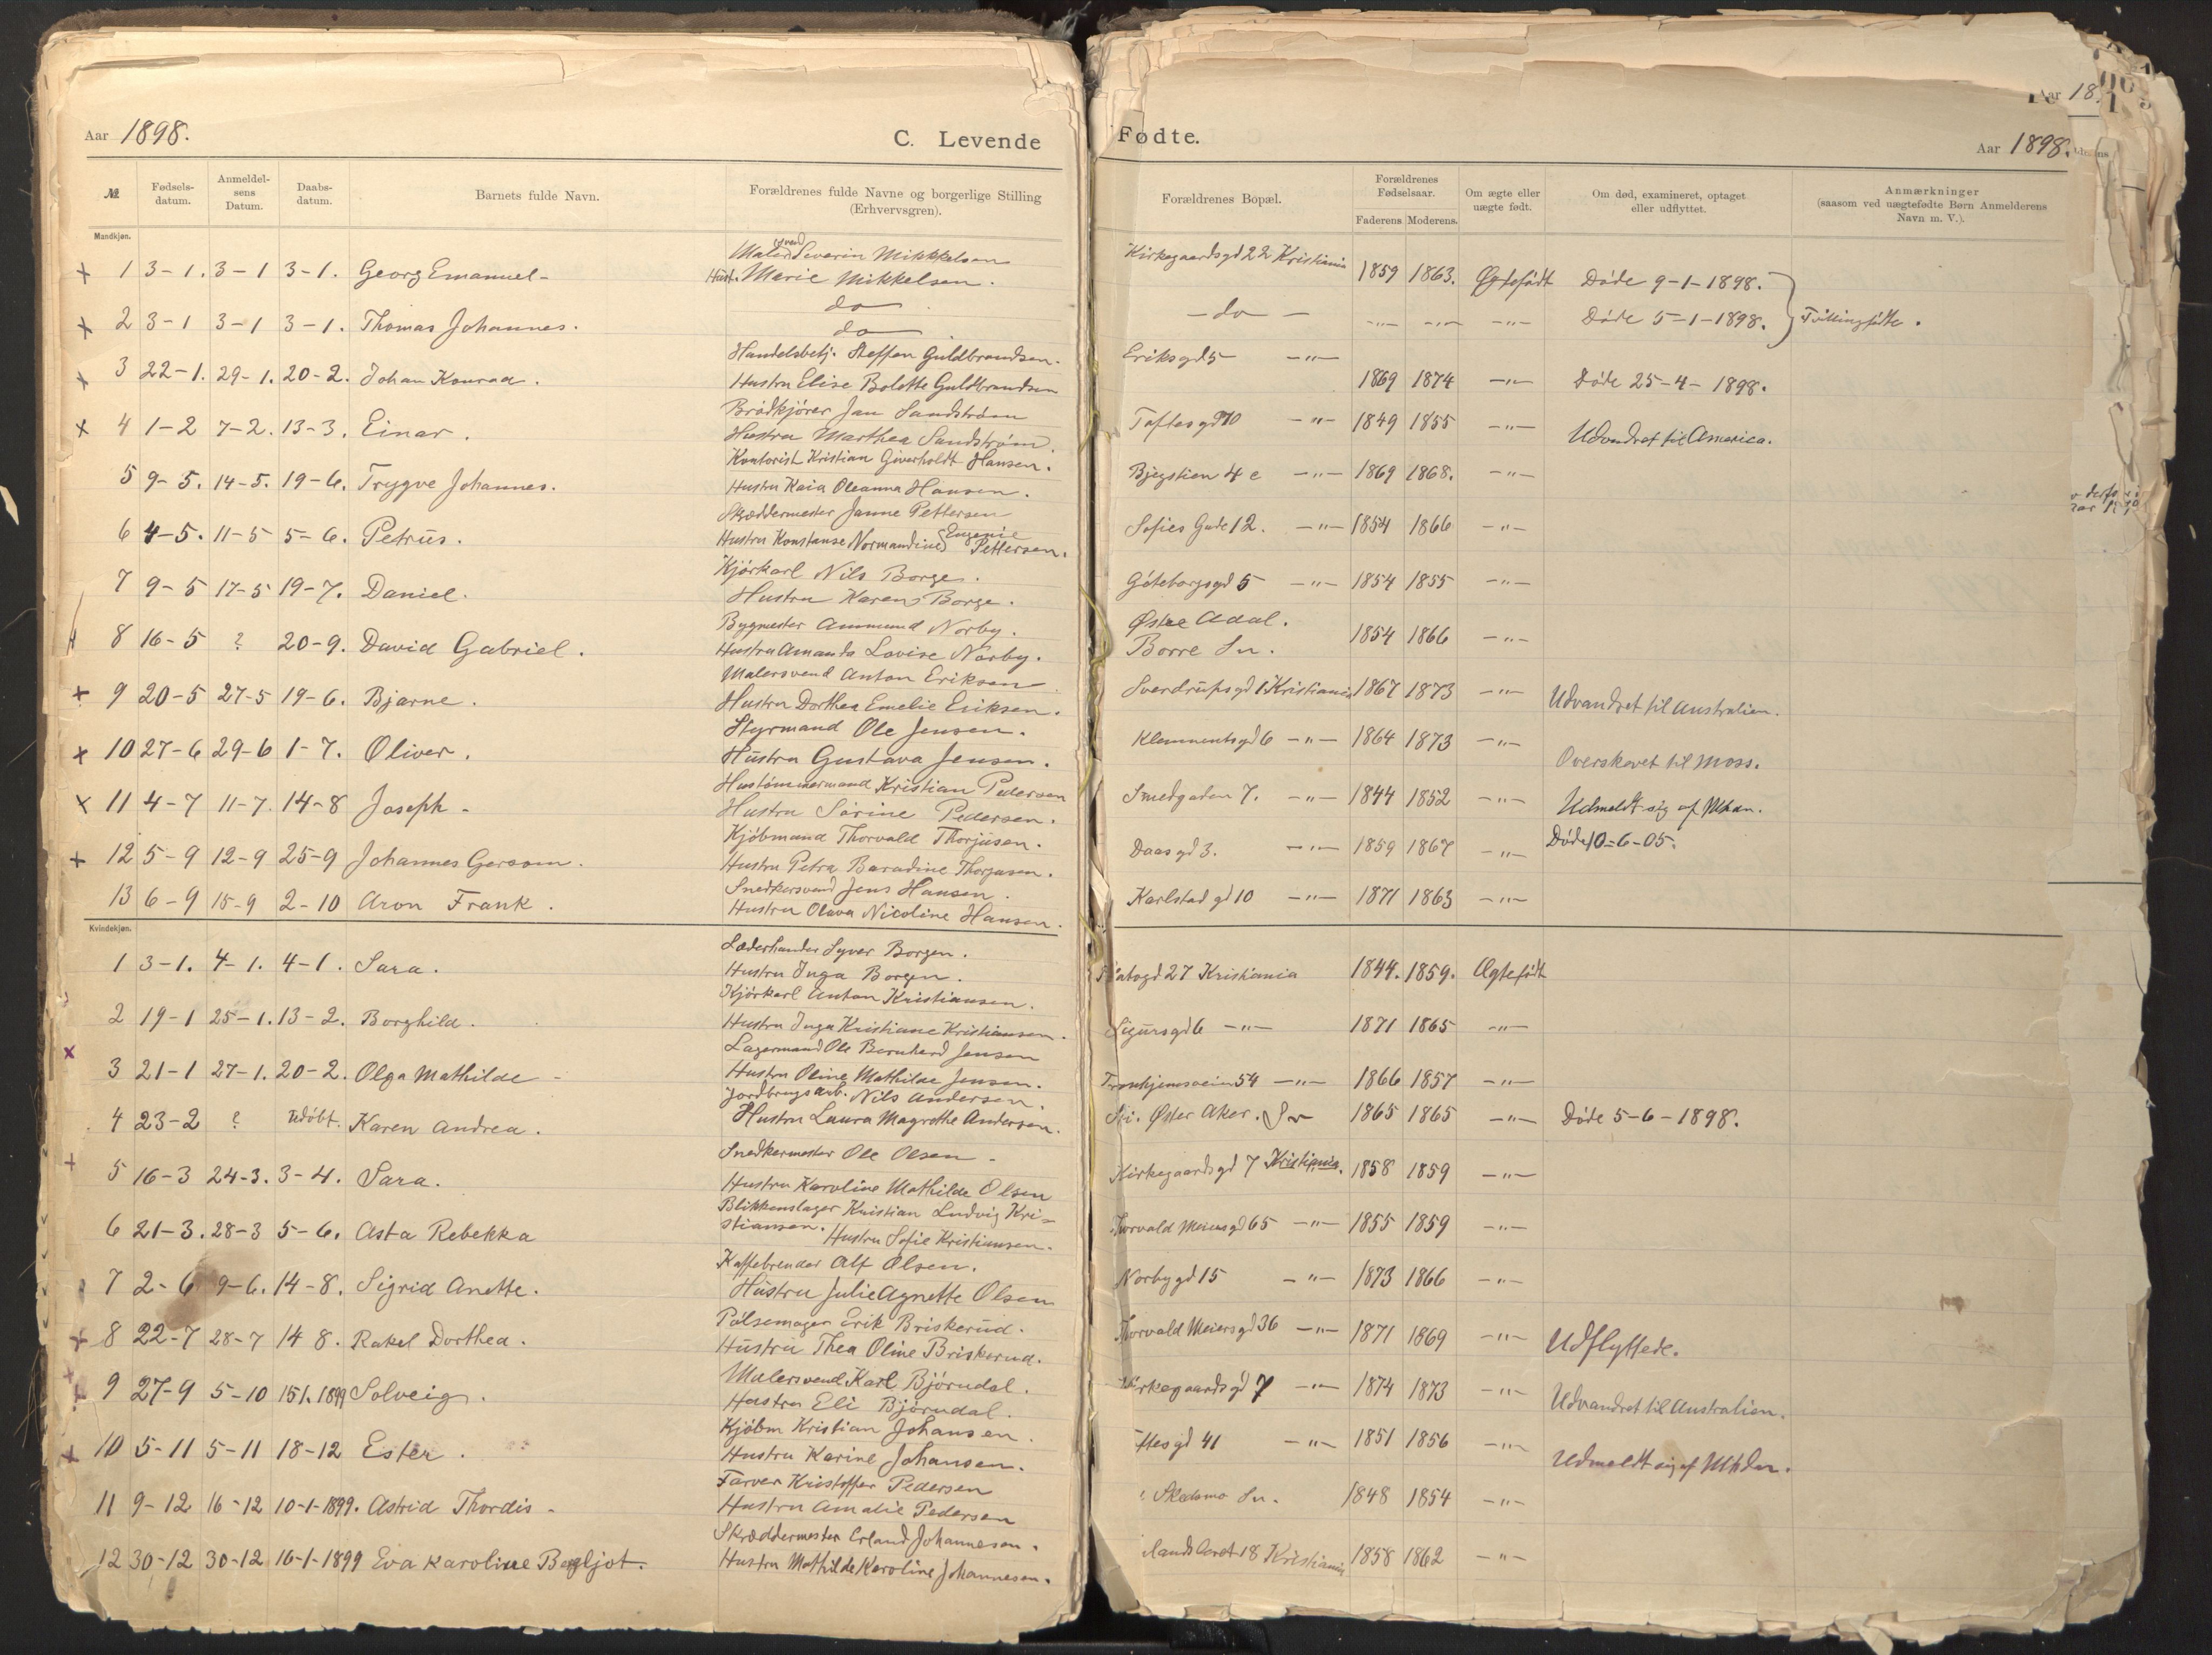 Aar 1898.
C. Levende
№
Fødsels-
datum.
Anmeldel-
sens
Datum.
Daabs-
datum.
Barnets fulde Navn.
Forældrenes fulde Navne og borgerlige Stilling
(Erhvervsgren).
Mandkjøn.
Malersvend Severin Mikkkelsen
1 3-1. 3-1 3-1. Georg Emanuel- Hust. Marie Mikkelsen.
do
2 3-1 3-1 3-1. Thomas Johannes. do
Handelsbetj. Steffen Guldbrandsen.
3 22-1. 29-1. 20-2. Johan Konrad. Hustru Elise Bolette Guldbrandsen
Brødkjører Jan Sandstrøm
4 1-2 7-2. 13-3. Einar. Hustru Marthea Sandstrøm.
Kontorist Kristian Giverholdt Hansen.
5 9-5. 14-5. 19-6. Trygve Johannes. Hustru Kaia Oleanna Hansen.
Skræddermester Janne Pettersen
6 4-5. 11-5 5-6. Petrus. Hustru Konstanse Normandine Eugenie Pettersen.
Kjørkarl Nils Borge.
7 9-5 17-5 19-7. Daniel. Hustru Karen Borge.
Bygmester Ammund Norby.
8 16-5 ? 20-9. David Gabriel. Hustru Amanda Lovise Norby.
Malersvend Anton Eriksen
9 20-5 27-5 19-6. Bjarne. Hustru Dorthea Emelie Eriksen.
Styrmand Ole Jensen.
10 27-6 29-6 1-7. Oliver. Hustru Gustava Jensen.
Hustømmermand Kristian Pedersen
11 4-7 11-7. 14-8 Joseph- Hustru Sørine Pedersen.
Kjøbmand Thorvald Thorjusen.
12 5-9 12-9 25-9 Johannes Gersom. Hustru Petra Baradine Thorjusen.
Snedkersvend Jens Hansen.
13 6-9 15-9 2-10 Aron Frank. Hustru Olava Nicoline Hansen.
Kvindekjøn.
Syver Borgen.
1 3-1. 4-1. 4-1. Sara. Hustru Inga Borgen.
Kjørkarl Anton Kristiansen.
2 19-1 25-1. 13-2. Borghild. Hustru Inga Kristiane Kristiansen.
Lagermand Ole Bernhard Jensen
3 21-1 27-1. 20-2. Olga Mathilde- Hustru Oline Mathilde Jensen.
Jordbrugsarb. Nils Andersen.
4 23-2 ? Udøbt. Karen Andrea. Hustru Laura Magrethe Andersen.
Snedkermester Ole Olsen-
5 16-3 24-3. 3-4. Sara. Hustru Karoline Mathilde Olsen
Blikkenslager Kristian Ludvig Kri-
6 21-3. 28-3 5-6. Asta Rebekka stiansen. Hustru Sofie Kristiansen.
Kaffebrender Alf Olsen.
7 2-6. 9-6. 14-8. Sigrid Anette. Hustru Julie Agnette Olsen
Pølsemager Erik Briskerud.
8 22-7 28-7 14 8. Rakel Dorthea. Hustru Thea Oline Briskerud.
Malersvend Karl Bjørndal.
9 27-9 5-10 151. 1899 Solveig. Hustru Eli Bjørndal.
Kjøbm Kristian Johansen.
10 5-11 5-11 18-12 Ester. Hustru Karine Johansen.
Farver Kristoffer Pedersen
11 9-12 16-12 10-1-1899. Astrid Thordis- Hustru Amalie Pedersen
Skræddermester Erland Johannesen.
12 30-12 30-12 16-1-1899 Eva Karoline Bergljot. Hustru Mathilde Karoline Johannesen.
Fødte.
Aar 18
Aar 1898.
Forældrenes Bopæl.
Forældrenes
Fødselsaar.
Faderens Moderens.
Om ægte eller
uægte født.
Om død, examineret, optaget
eller udflyttet.
Anmærkninger
(saasom ved uægtefødte Børn Anmelderens
Navn m. V.).
Kirkegaardsgd 22 Kristiania 1859 1863. Ægtefødt Døde 9-1-1898.
-do- -"- -"- -"- Døde 5-1-1898. Tvillingfødte.
Eriksgd 5 -"- 1869 1874 -"- Døde 25-4-1898.
Toftesgd 70 -"- 1849 1855 -"- Udvandret til America.
Bjegstien 4 c -"- 1869 1868. -"-
Sofies Gade 12. -"- 1854 1866 -"-
Gøteborgsgd 5 -"- 1854 1855 -"-
Østre Adal.
Borre Sn. 1854 1866 -"-
Sverdrupsgd 1 Kristiania 1867 1873 -"- Udvandret til Australien.
Klemmentsgd 6 -"- 1864 1873 -"- Overskrevet til Moss.
Smedgaden 7. -"- 1844 1852 -"- Udmeldt sig af Mhdn.
Daasgd 3. -"- 1859 1867 -"- Døde 10-6-05.
Karlstadgd 10 -"- 1871 1863 -"-
27 Kristiania 1844. 1859. Ægtefødt
Sigursgd 6 -"- 1871 1865 -"-
Tronhjemsveien 54 -"- 1866 1857 -"-
Øster Aker. Sn 1865 1865 -"- Døde 5-6-1898.
Kirkegaardsgd 7 Kristiania. 1858 1859 -"-
Thorvald Meiersgd 65 -"- 1855 1859 -"-
Norbygd 15 -"- 1873 1866 -"-
Thorvald Meiersgd 36 -"- 1871 1869 -"- Udflyttede.
Kirkegaardsgd 7 -"- 1874 1873 -"- Udvandret til Australien.
ftesgd 41 -"- 1851 1856 -"- Udmeldt sig af Mhdn.
Skedsmo Sn. 1848 1854 -"-
18 Kristiania 1858 1862 -"-